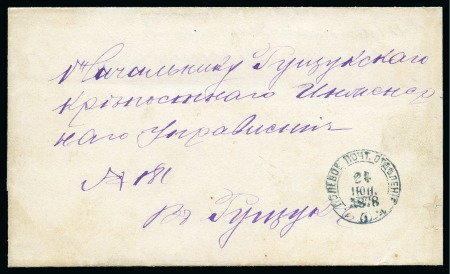 Начальнику Рущукскаго
крѣпостнаго Инженер-
наго Управленія
№ 181
Въ Рущукъ
ПОЛЕВОЕ ПОЧТ. ОТДѢЛЕНІЕ
24
ІЮН.
1878